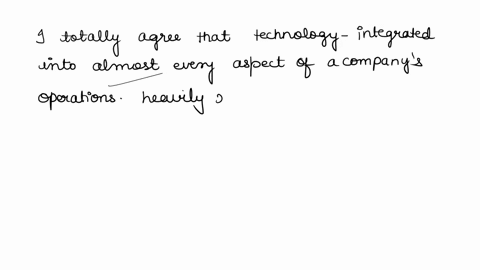 I totally agree that technology-integrated
into almost every aspect of a company's
operations. heavily